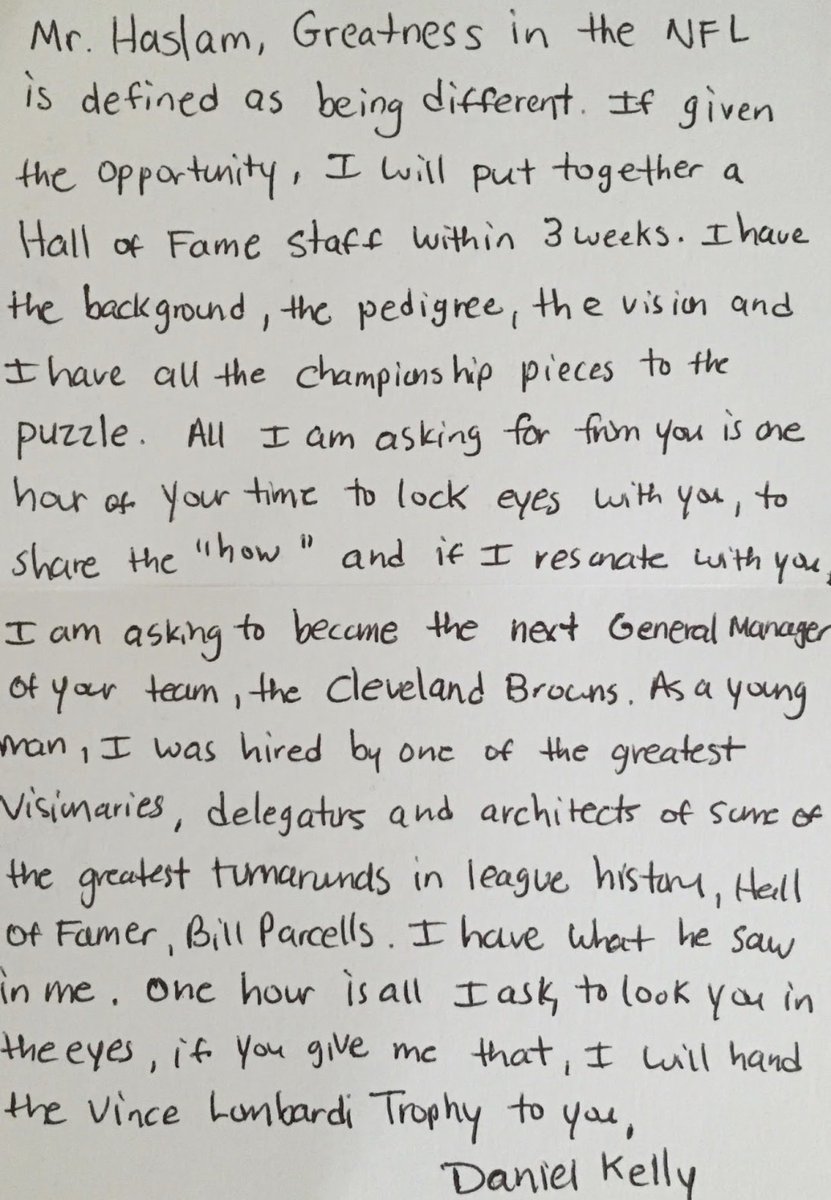 Mr. Haslam, Greatness in the NFL
is defined as being different. If given
the opportunity, I will put together a
Hall of Fame staff within 3 weeks. I have
the background, the pedigree, the vision and
I have all the championship pieces to the
puzzle. All I am asking for from you is one
hour of your time to lock eyes with you, to
share the "how" and if I resonate with you,
I am asking to become the next General Manager
of your team, the Cleveland Browns. As a young
man, I was hired by one of the greatest
visionaries, delegators and architects of some of
the greatest turnarounds in league history, Hall
of Famer, Bill Parcells. I have what he saw
in me. One hour is all I ask, to look you in
the eyes, if you give me that, I will hand
the Vince Lombardi Trophy to you,
Daniel Kelly